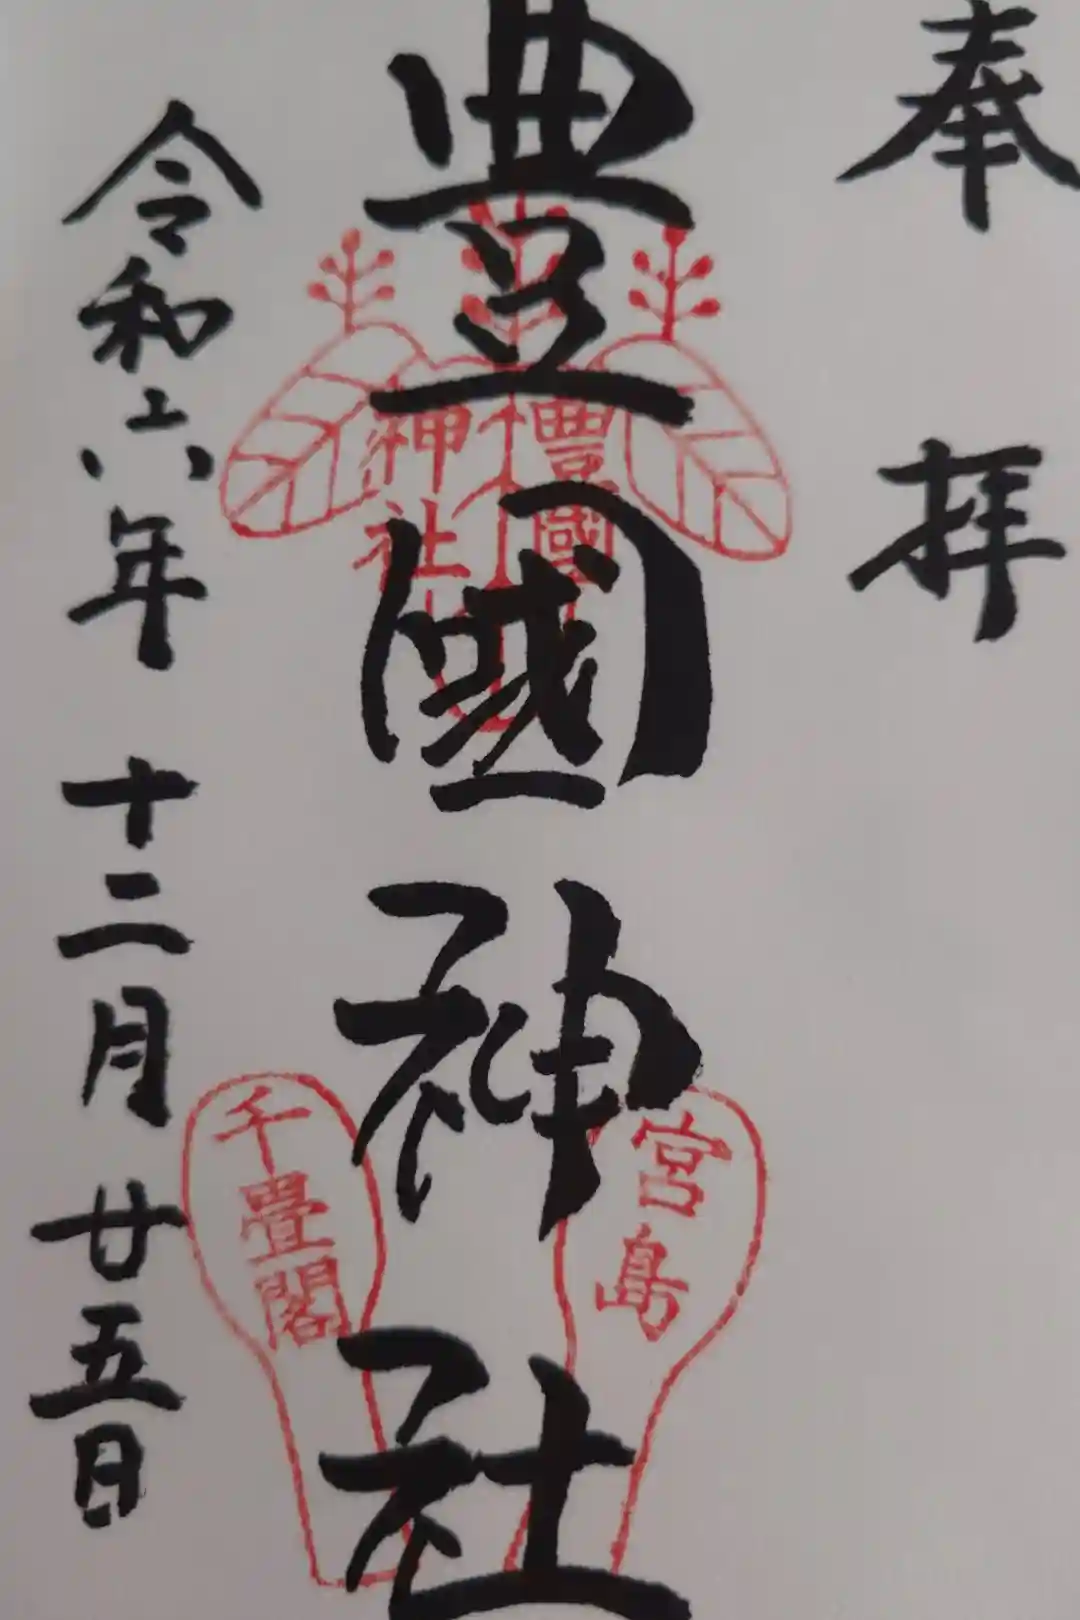 奉拝
豊國神社
豊國
神社
宮島
千畳閣
令和六年 十二月 廿五日